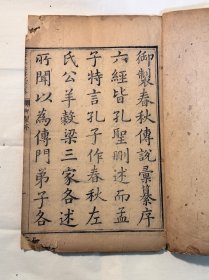 御製春秋傳說彙纂序
六經皆孔聖刪述而孟
子特言孔子作春秋左
氏公羊榖梁三家各述
所聞以為傳門弟子各